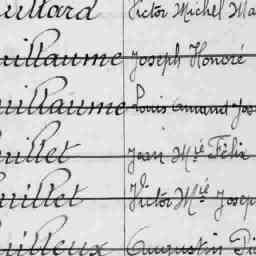 uillard Victor Michel Ma
uillaume Joseph Honoré
uillaume Louis Amand Jos
uillet Jean Mie Félix
uillet Victor Mie Joseph
uilleux Augustin Pi